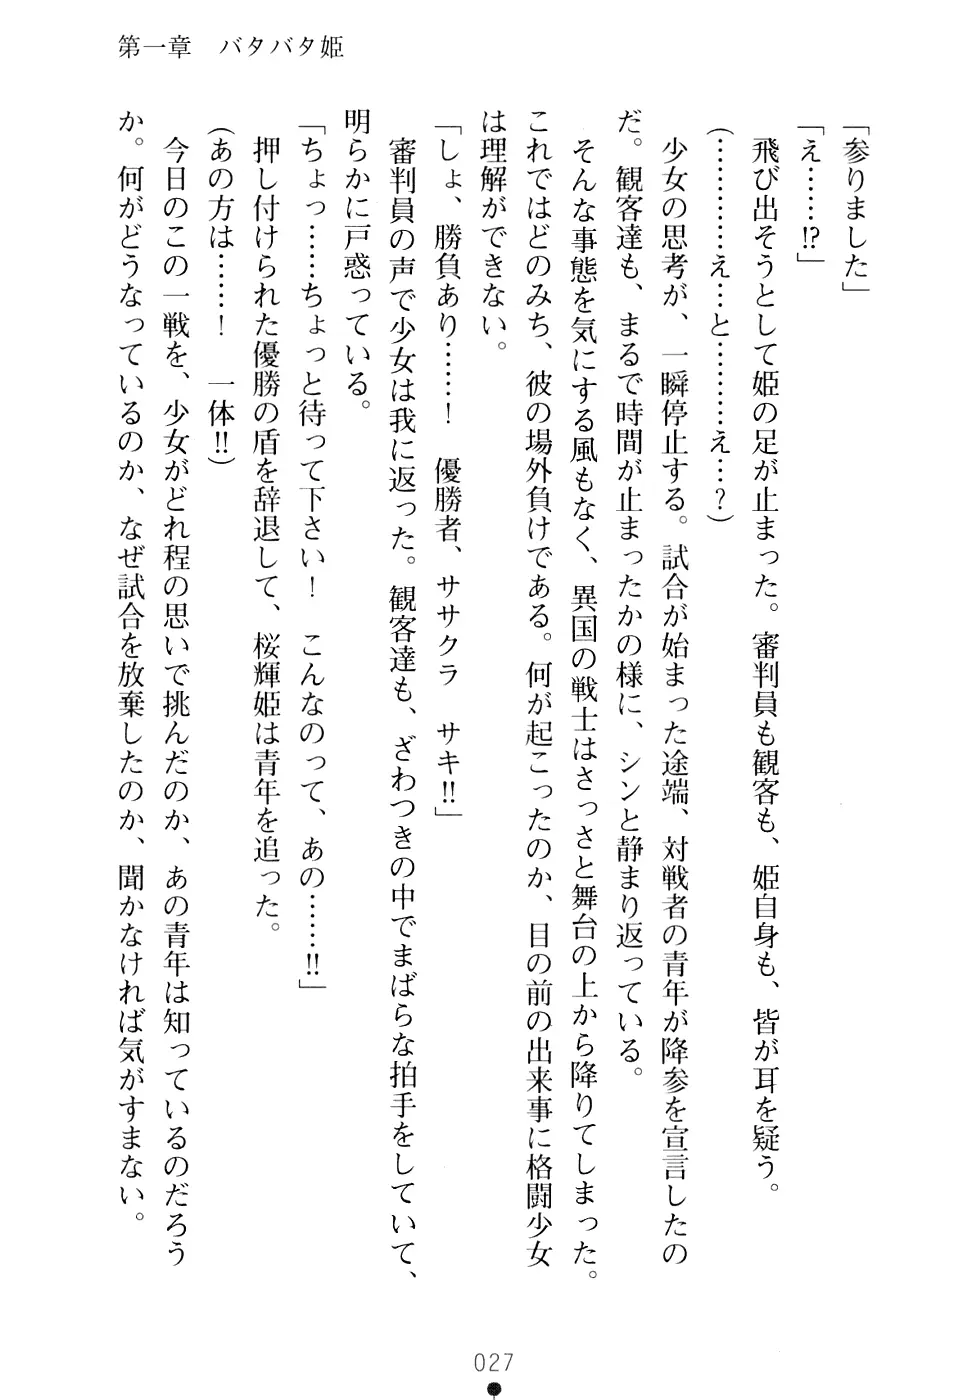 第一章　バタバタ姫
「参りました」
「え……!?」
　飛び出そうとして姫の足が止まった。審判員も観客も、姫自身も、皆が耳を疑う。
（…………え…と………え…？）
　少女の思考が、一瞬停止する。試合が始まった途端、対戦者の青年が降参を宣言したの
だ。観客達も、まるで時間が止まったかの様に、シンと静まり返っている。
　そんな事態を気にする風もなく、異国の戦士はさっさと舞台の上から降りてしまった。
これではどのみち、彼の場外負けである。何が起こったのか、目の前の出来事に格闘少女
は理解ができない。
「しょ、勝負あり……！　優勝者、ササクラ　サキ!!」
　審判員の声で少女は我に返った。観客達も、ざわつきの中でまばらな拍手をしていて、
明らかに戸惑っている。
「ちょっ……ちょっと待って下さい！　こんなのって、あの……!!」
　押し付けられた優勝の盾を辞退して、桜輝姫は青年を追った。
（あの方は……！　一体!!）
　今日のこの一戦を、少女がどれ程の思いで挑んだのか、あの青年は知っているのだろう
か。何がどうなっているのか、なぜ試合を放棄したのか、聞かなければ気がすまない。
027